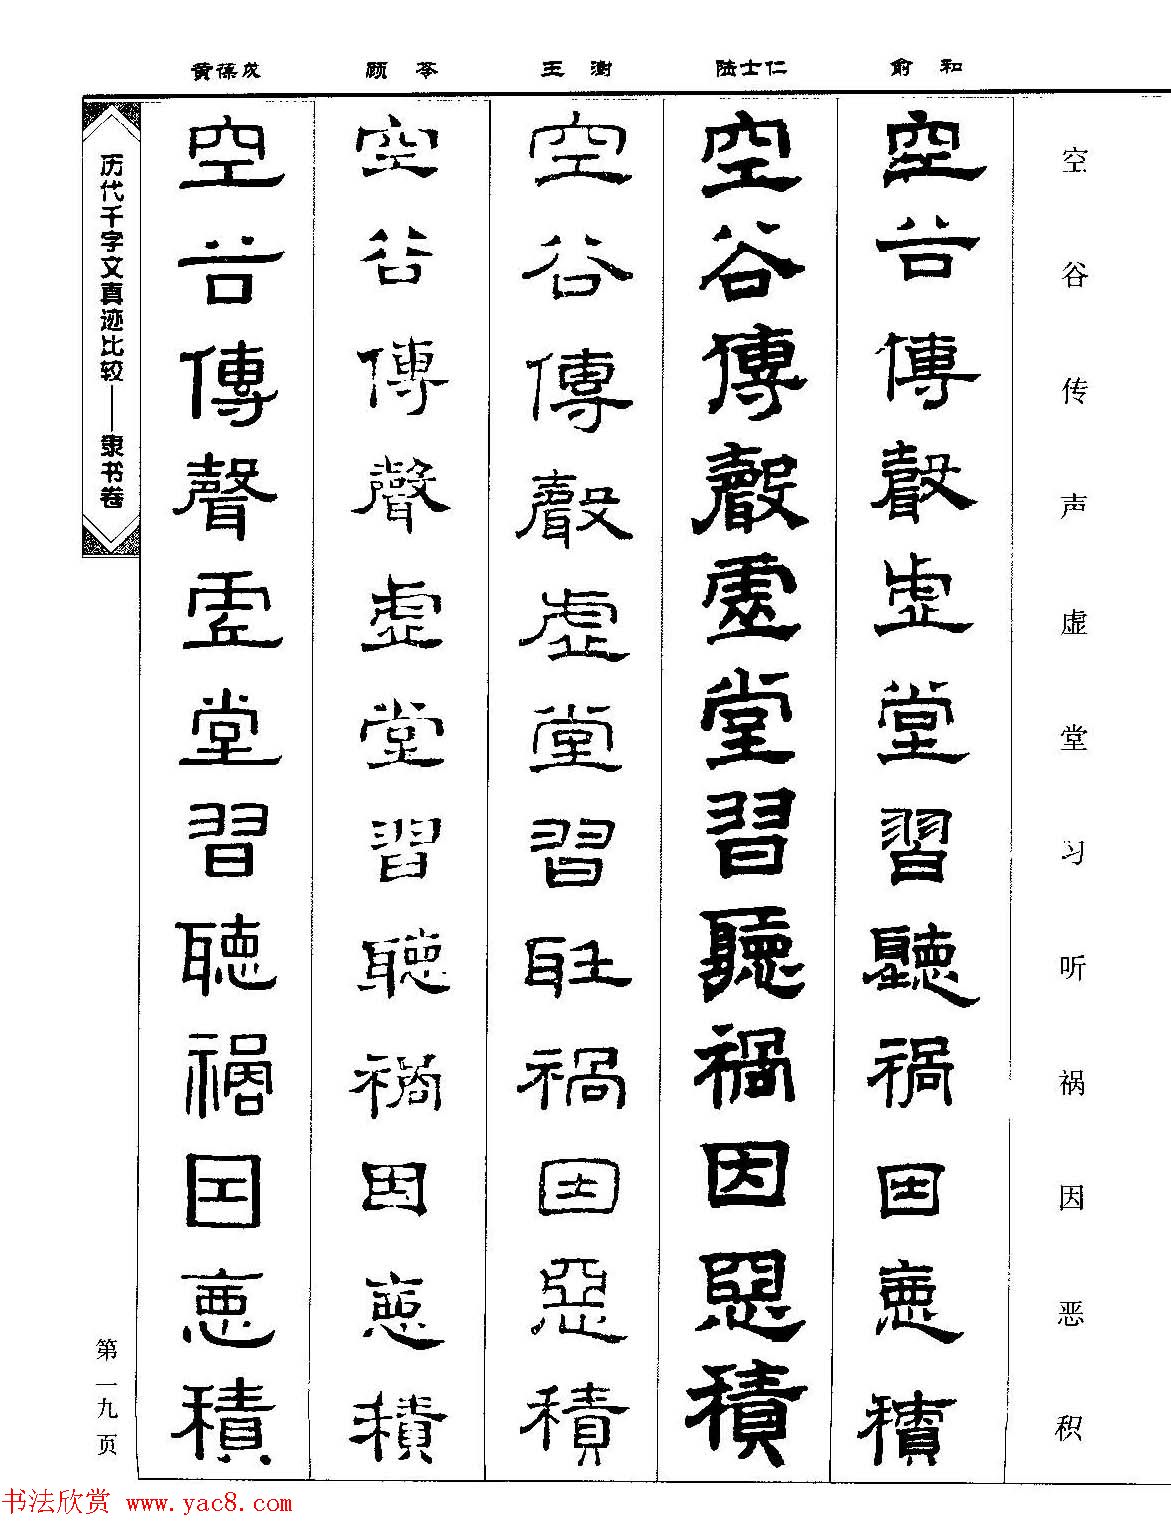 黄葆戉 顾苓 王澍 陆士仁 俞和
空谷传声虚堂习听祸因恶积
空谷傳聲虛堂習聽禍因惡積
空谷傳聲虛堂習聽禍因惡積
空谷傳聲虛堂習聽禍因惡積
空谷傳聲虛堂習聽禍因惡積
空谷傳聲虛堂習聽禍因惡積
历代千字文真迹比较——隶书卷
第一九页
书法欣赏 www.yac8.com